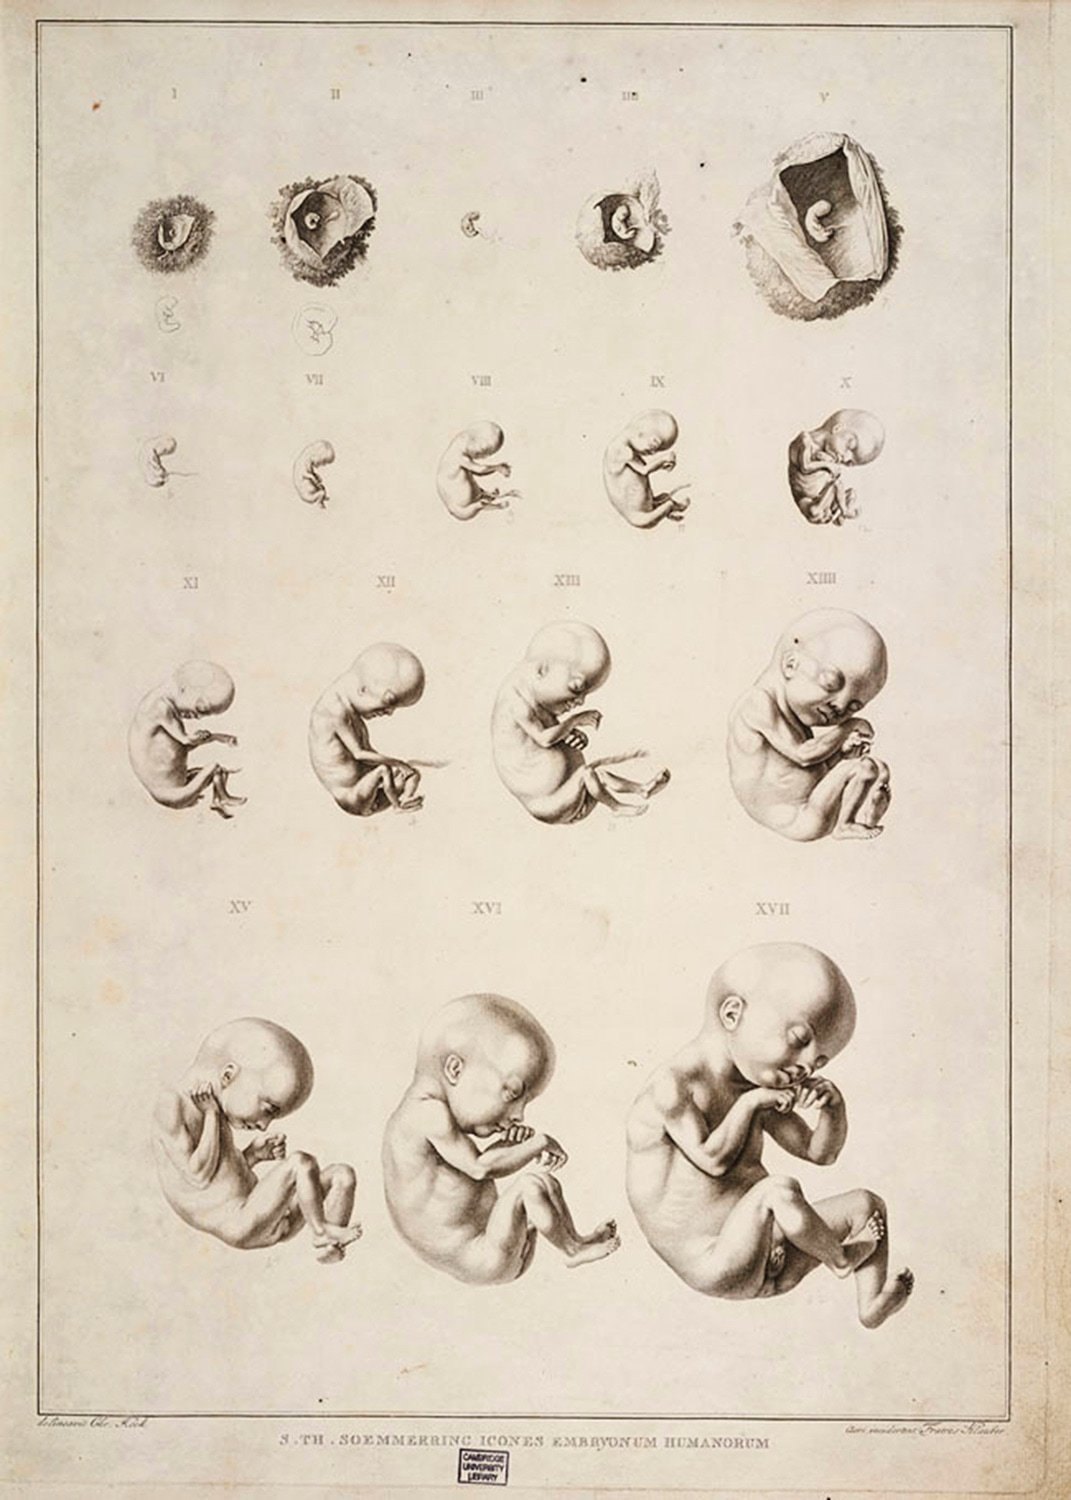 I II III IIII V
VI VII VIII IX X
XI XII XIII XIIII
XV XVI XVII
delineavit Chr. Köck
Fratres Klauber
S. TH. SOEMMERRING ICONES EMBRYONUM HUMANORUM
CAMBRIDGE
UNIVERSITY
LIBRARY